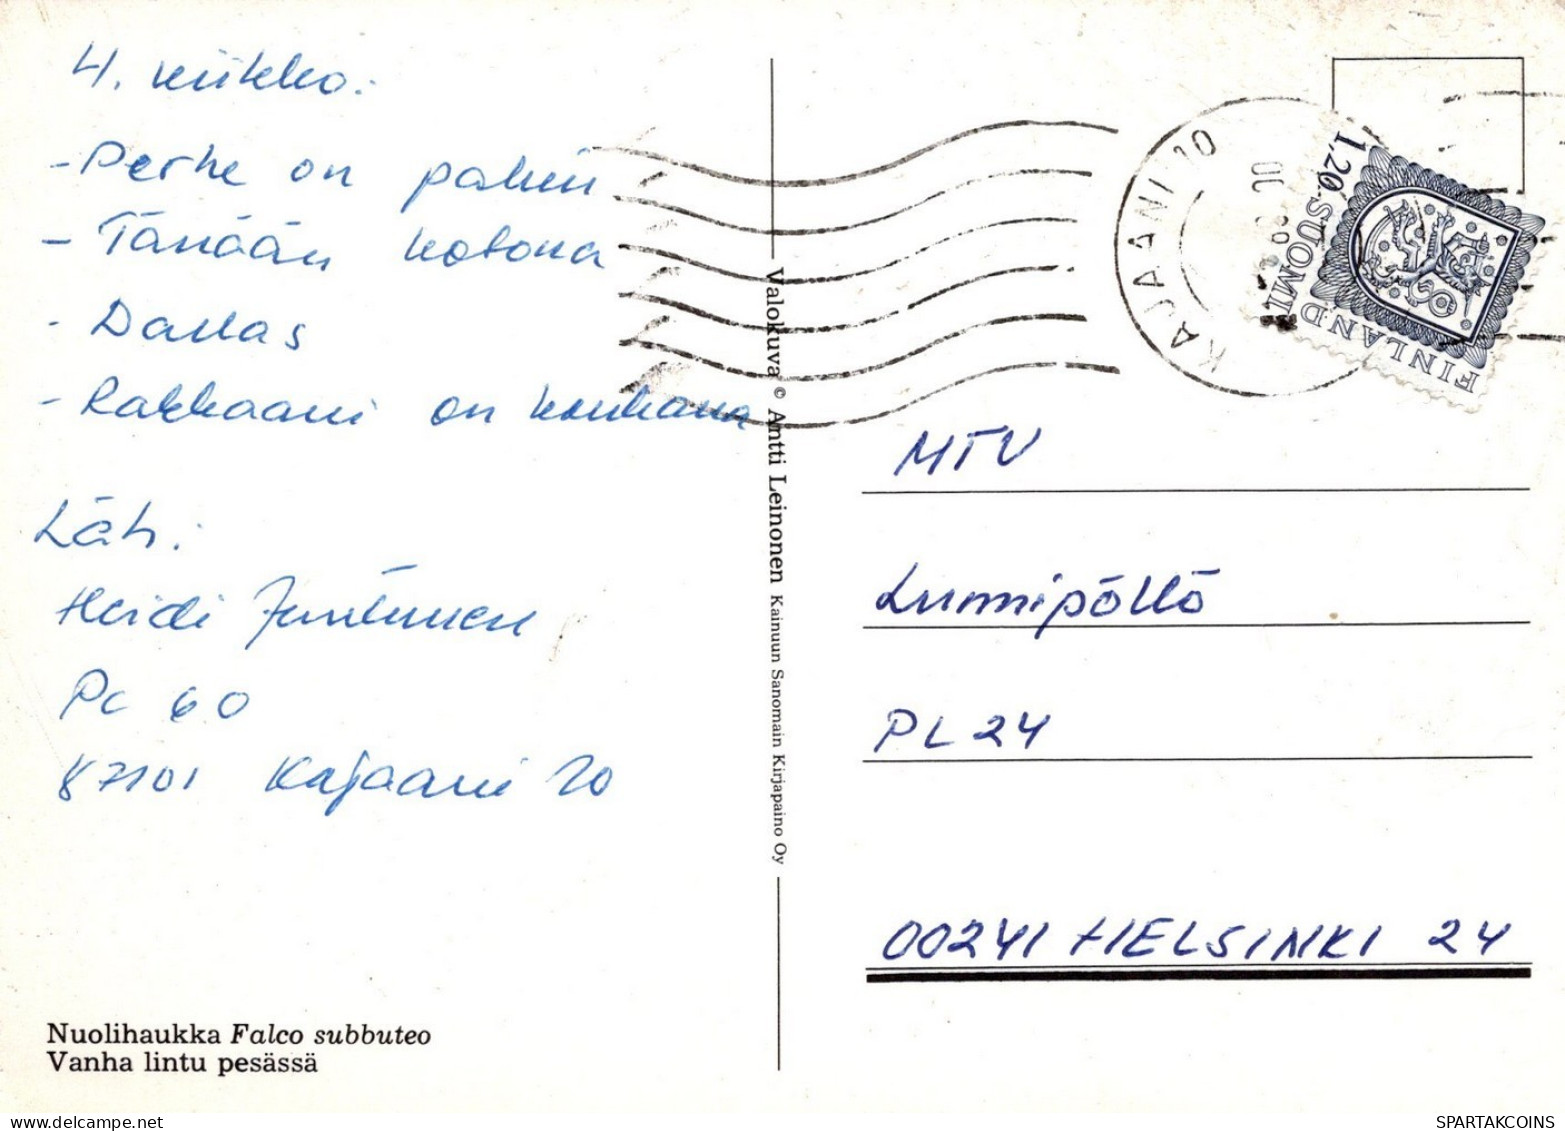 4. viikko:
- Perhe on pahin
- Tänään kotona
- Dallas
- Rakkaani on hauhana
Läh:
Heidi Juntunen
PL 60
87101 Kajaani 10
Nuolihaukka Falco subbuteo
Vanha lintu pesässä
Valokuva © Antti Leinonen Kainuun Sanomain Kirjapaino Oy
KAJAANI 10
1,20 SUOMI
FINLAND
MTV
Lumipallo
PL 24
00241 HELSINKI 24
SPARTAKCOINS